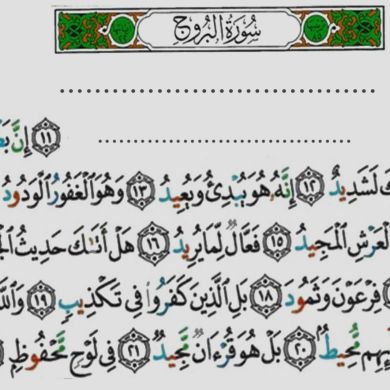 سُورَةُ الْبُرُوجِ
﴿١١﴾ إِنَّ
لَشَدِيدٌ ﴿١٢﴾ إِنَّهُۥ هُوَ يُبْدِئُ وَيُعِيدُ ﴿١٣﴾ وَهُوَ الْغَفُورُ الْوَدُودُ
الْعَرْشِ الْمَجِيدُ ﴿١٥﴾ فَعَّالٌ لِّمَا يُرِيدُ ﴿١٦﴾ هَلْ أَتَىٰكَ حَدِيثُ
فِرْعَوْنَ وَثَمُودَ ﴿١٨﴾ بَلِ الَّذِينَ كَفَرُوا۟ فِى تَكْذِيبٍ ﴿١٩﴾ وَاللَّهُ
مُّحِيطٌۢ ﴿٢٠﴾ بَلْ هُوَ قُرْءَانٌ مَّجِيدٌ ﴿٢١﴾ فِى لَوْحٍ مَّحْفُوظٍۭ